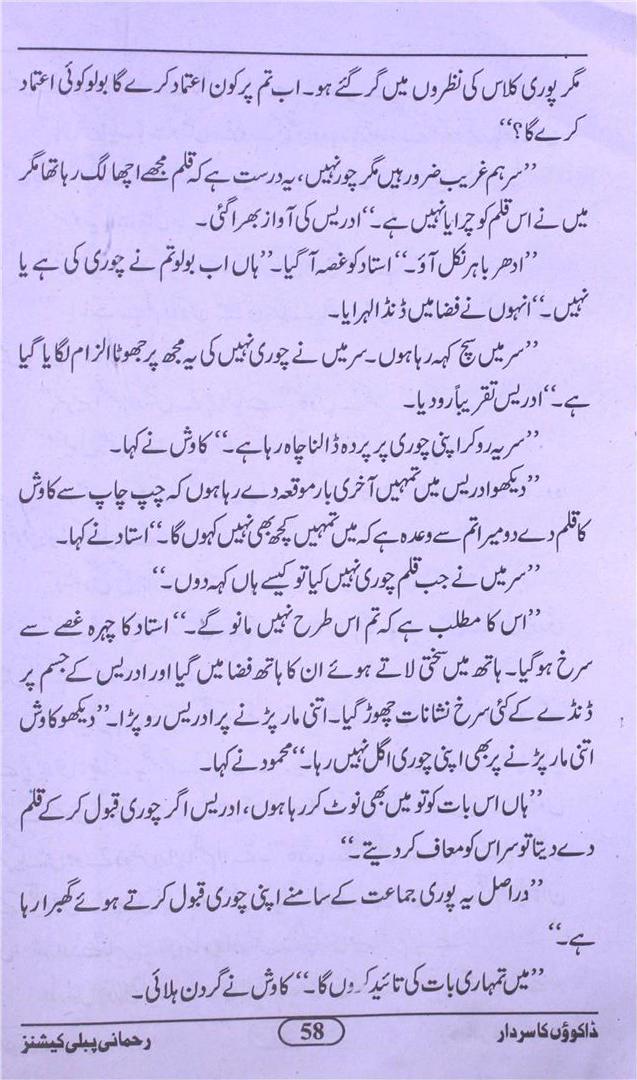 مگر پوری کلاس کی نظروں میں گر گئے ہو۔ اب تم پر کون اعتماد کرے گا بولو کوئی اعتماد
کرے گا؟‘‘
’’سر ہم غریب ضرور ہیں مگر چور نہیں، یہ درست ہے کہ قلم مجھے اچھا لگ رہا تھا مگر
میں نے اس قلم کو چرایا نہیں ہے۔‘‘ ادریس کی آواز بھرا گئی۔
’’ادھر باہر نکل آؤ۔‘‘ استاد کو غصہ آ گیا۔ ’’ہاں اب بولو تم نے چوری کی ہے یا
نہیں۔‘‘ انہوں نے فضا میں ڈنڈا لہرایا۔
’’سر میں سچ کہہ رہا ہوں۔ سر میں نے چوری نہیں کی یہ مجھ پر جھوٹا الزام لگایا گیا
ہے۔‘‘ ادریس تقریباً رو دیا۔
’’سر یہ رو کر اپنی چوری پر پردہ ڈالنا چاہ رہا ہے۔‘‘ کاوش نے کہا۔
’’دیکھو ادریس میں تمہیں آخری بار موقعہ دے رہا ہوں کہ چپ چاپ سے کاوش
کا قلم دے دو میرا تم سے وعدہ ہے کہ میں تمہیں کچھ بھی نہیں کہوں گا۔‘‘ استاد نے کہا۔
’’سر میں نے جب قلم چوری نہیں کیا تو کیسے ہاں کہہ دوں۔‘‘
’’اس کا مطلب ہے کہ تم اس طرح نہیں مانو گے۔‘‘ استاد کا چہرہ غصے سے
سرخ ہو گیا۔ ہاتھ میں سختی لاتے ہوئے ان کا ہاتھ فضا میں گیا اور ادریس کے جسم پر
ڈنڈے کے کئی سرخ نشانات چھوڑ گیا۔ اتنی مار پڑنے پر ادریس رو پڑا۔ ’’دیکھو کاوش
اتنی مار پڑنے پر بھی اپنی چوری اگل نہیں رہا۔‘‘ محمود نے کہا۔
’’ہاں اس بات کو تو میں بھی نوٹ کر رہا ہوں، ادریس اگر چوری قبول کر کے قلم
دے دیتا تو سر اس کو معاف کر دیتے۔‘‘
’’دراصل یہ پوری جماعت کے سامنے اپنی چوری قبول کرتے ہوئے گھبرا رہا
ہے۔‘‘
’’میں تمہاری بات کی تائید کروں گا۔‘‘ کاوش نے گردن ہلائی۔
ڈاکوؤں کا سردار 58 رحمانی پبلی کیشنز